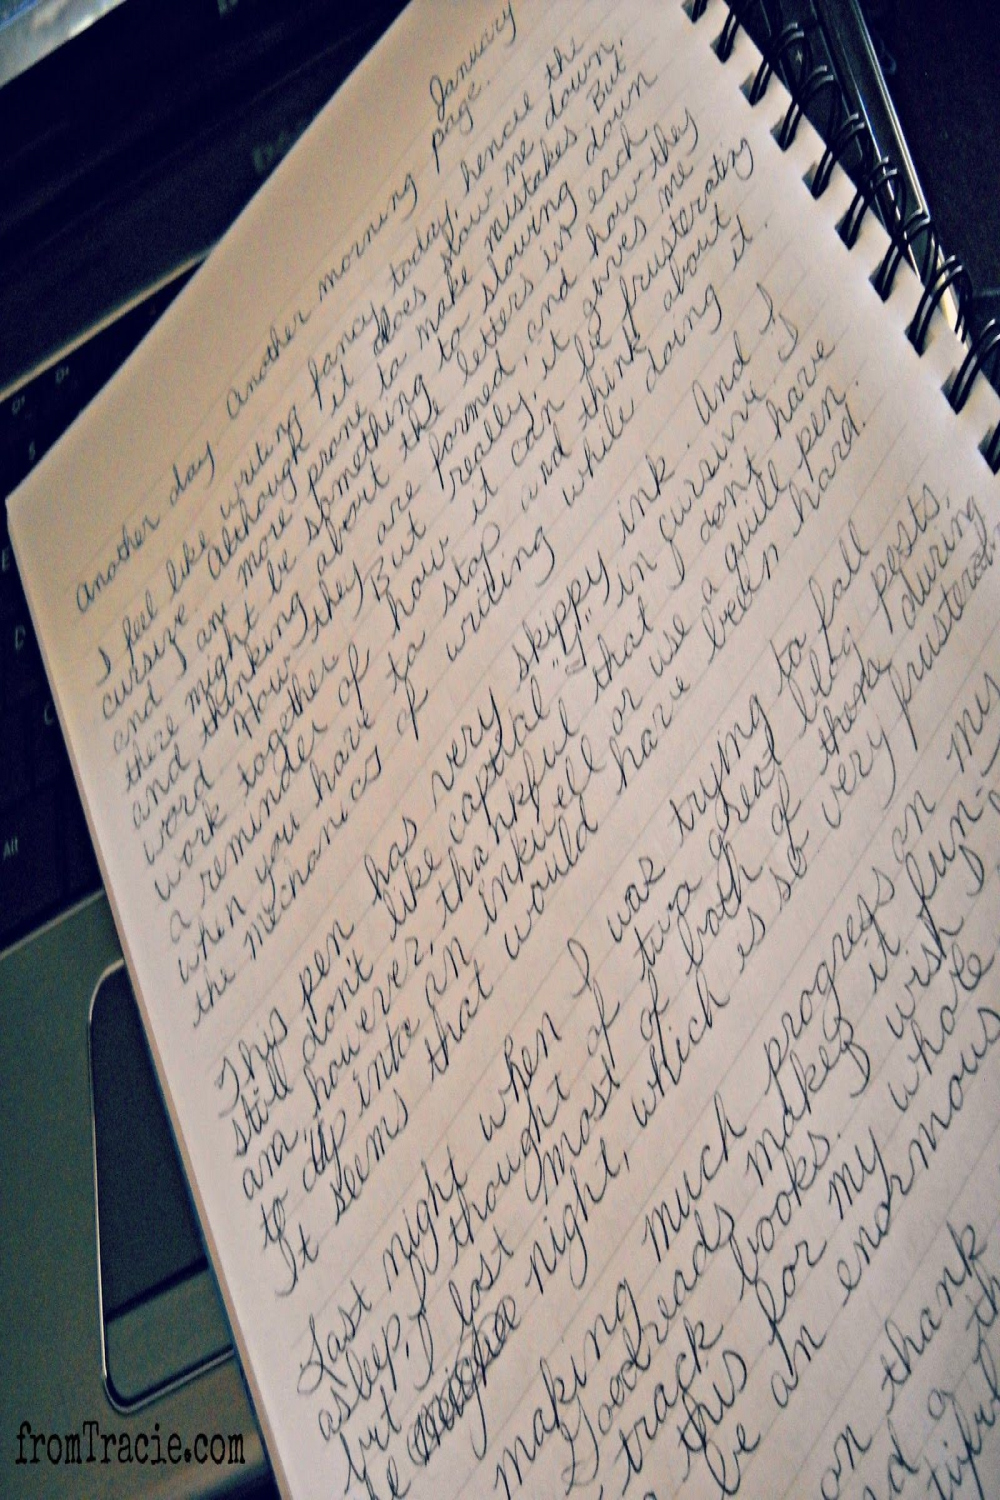 January
Another day another morning page.
I feel like writing fancy today, hence the
cursive. Although it does slow me down,
and I am more prone to make mistakes. But
there might be something to slowing down
and thinking about the letters is each
word. How they are formed, and how they
work together. But really, it gives me
a reminder of how it can be frusterating
when you have to stop and think about
the mechanics of writing while doing it.
This pen has very skippy ink. And I
still don't like captial "I" in cursive. I
am, however, thankful that I don't have
to dip into an inkwell or use a quill pen.
It seems that would have been hard.
Last night when I was trying to fall
asleep, I thought of two great blog posts,
but I lost most of both of them during
the night, which is so very frusterat
making much progress on my
Goodreads makes it fun
track books. I wish I
this for my whole
be an enormous
on thank
fromTracie.com